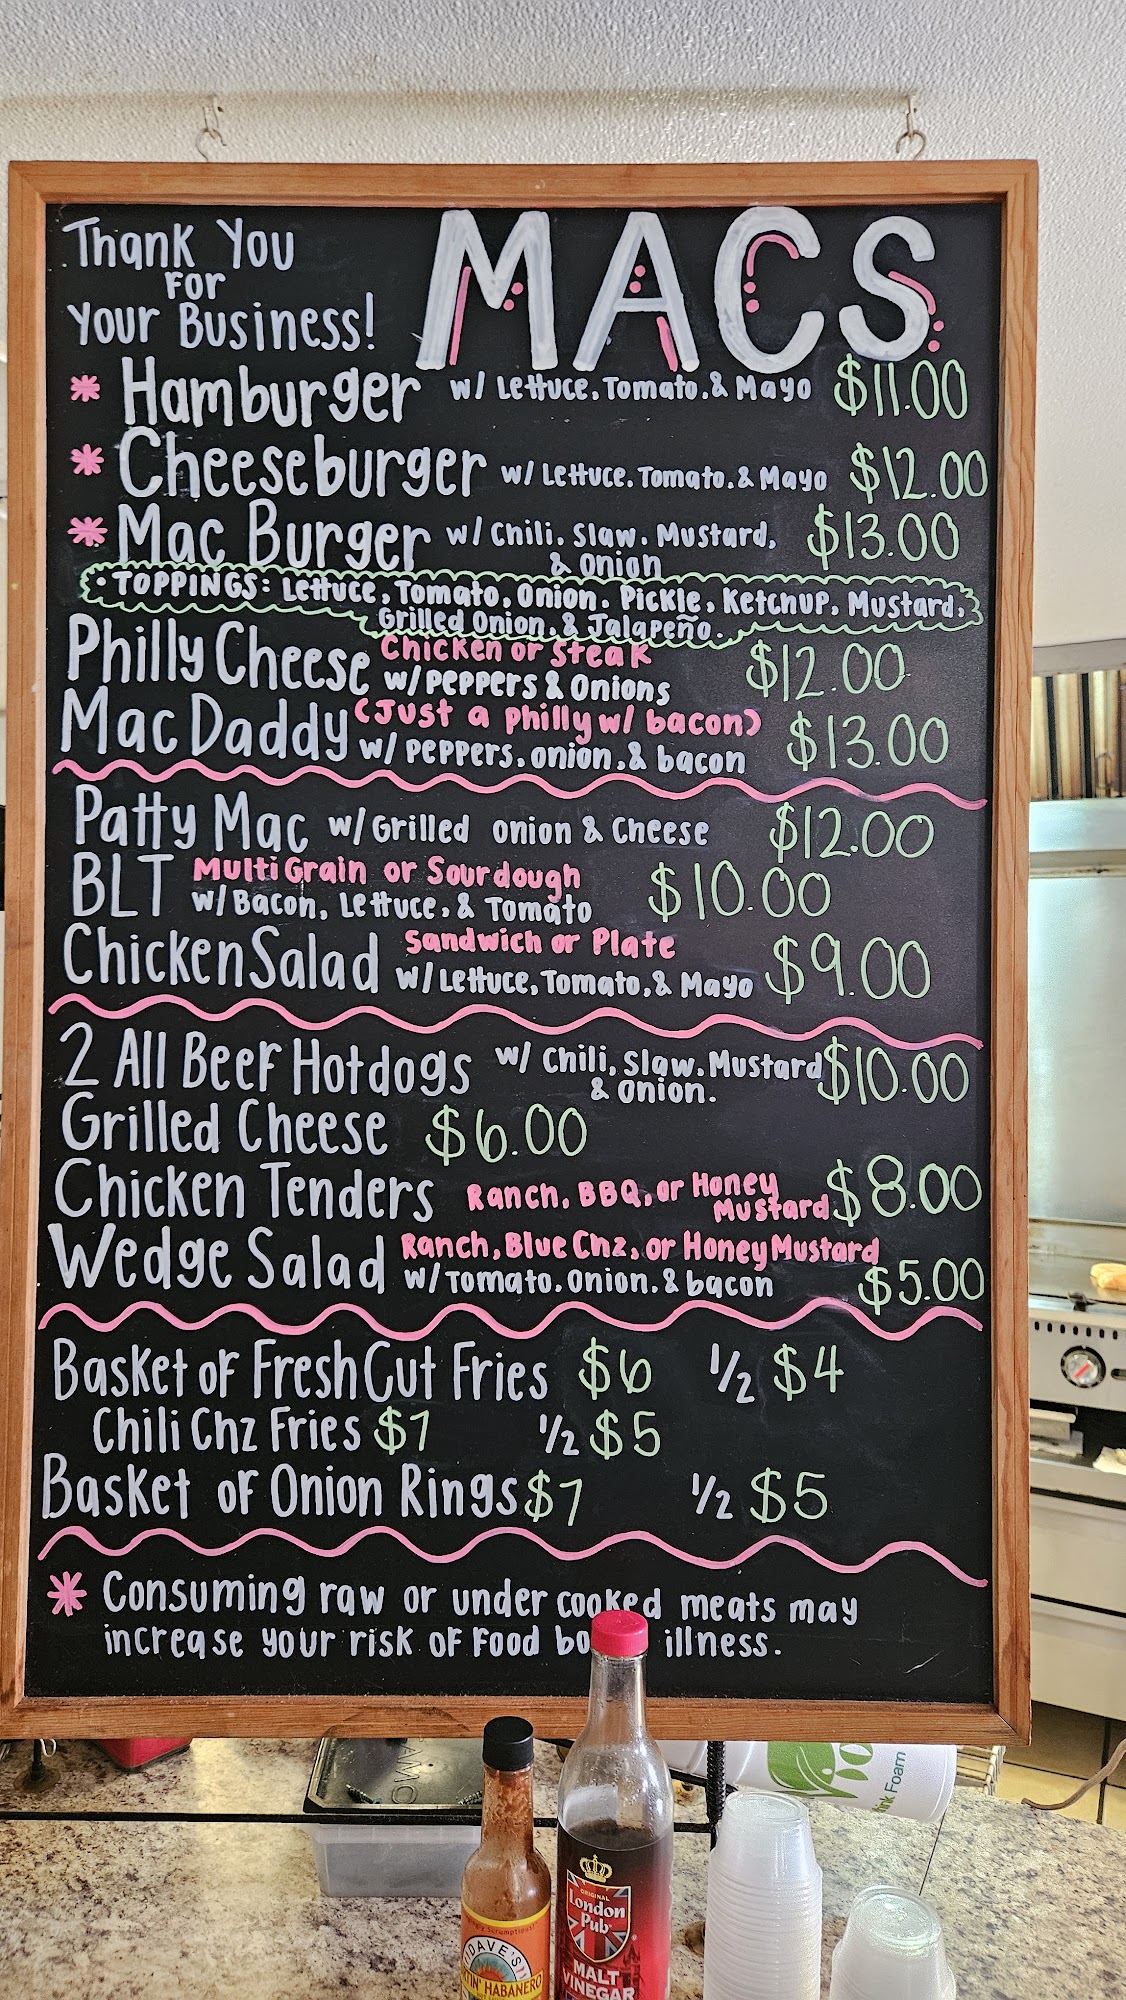 Thank You
FOR
Your Business!
MACS
* Hamburger w/ Lettuce, Tomato, & Mayo $11.00
* Cheeseburger w/ Lettuce, Tomato, & Mayo $12.00
* Mac Burger w/ Chili, Slaw, Mustard, $13.00
& Onion
• TOPPINGS: Lettuce, Tomato, Onion, Pickle, Ketchup, Mustard,
Grilled Onion, & Jalapeño.
Philly Cheese Chicken or Steak $12.00
w/ Peppers & Onions
Mac Daddy (Just a philly w/ bacon) $13.00
w/ Peppers, onion, & bacon
Patty Mac w/ Grilled onion & Cheese $12.00
BLT Multi Grain or Sourdough $10.00
w/ Bacon, Lettuce, & Tomato
Chicken Salad Sandwich or Plate $9.00
w/ Lettuce, Tomato, & Mayo
2 All Beef Hotdogs w/ Chili, Slaw, Mustard $10.00
& Onion.
Grilled Cheese $6.00
Chicken Tenders Ranch, BBQ, or Honey $8.00
Mustard
Wedge Salad Ranch, Blue Chz, or Honey Mustard
w/ Tomato, Onion, & bacon $5.00
Basket of Fresh Cut Fries $6 1/2 $4
Chili Chz Fries $7 1/2 $5
Basket of Onion Rings $7 1/2 $5
* Consuming raw or under cooked meats may
increase your risk of Food bo illness.
ORIGINAL
London
Pub
MALT
VINEGAR
DAVE'S
HABANERO
ink Foam